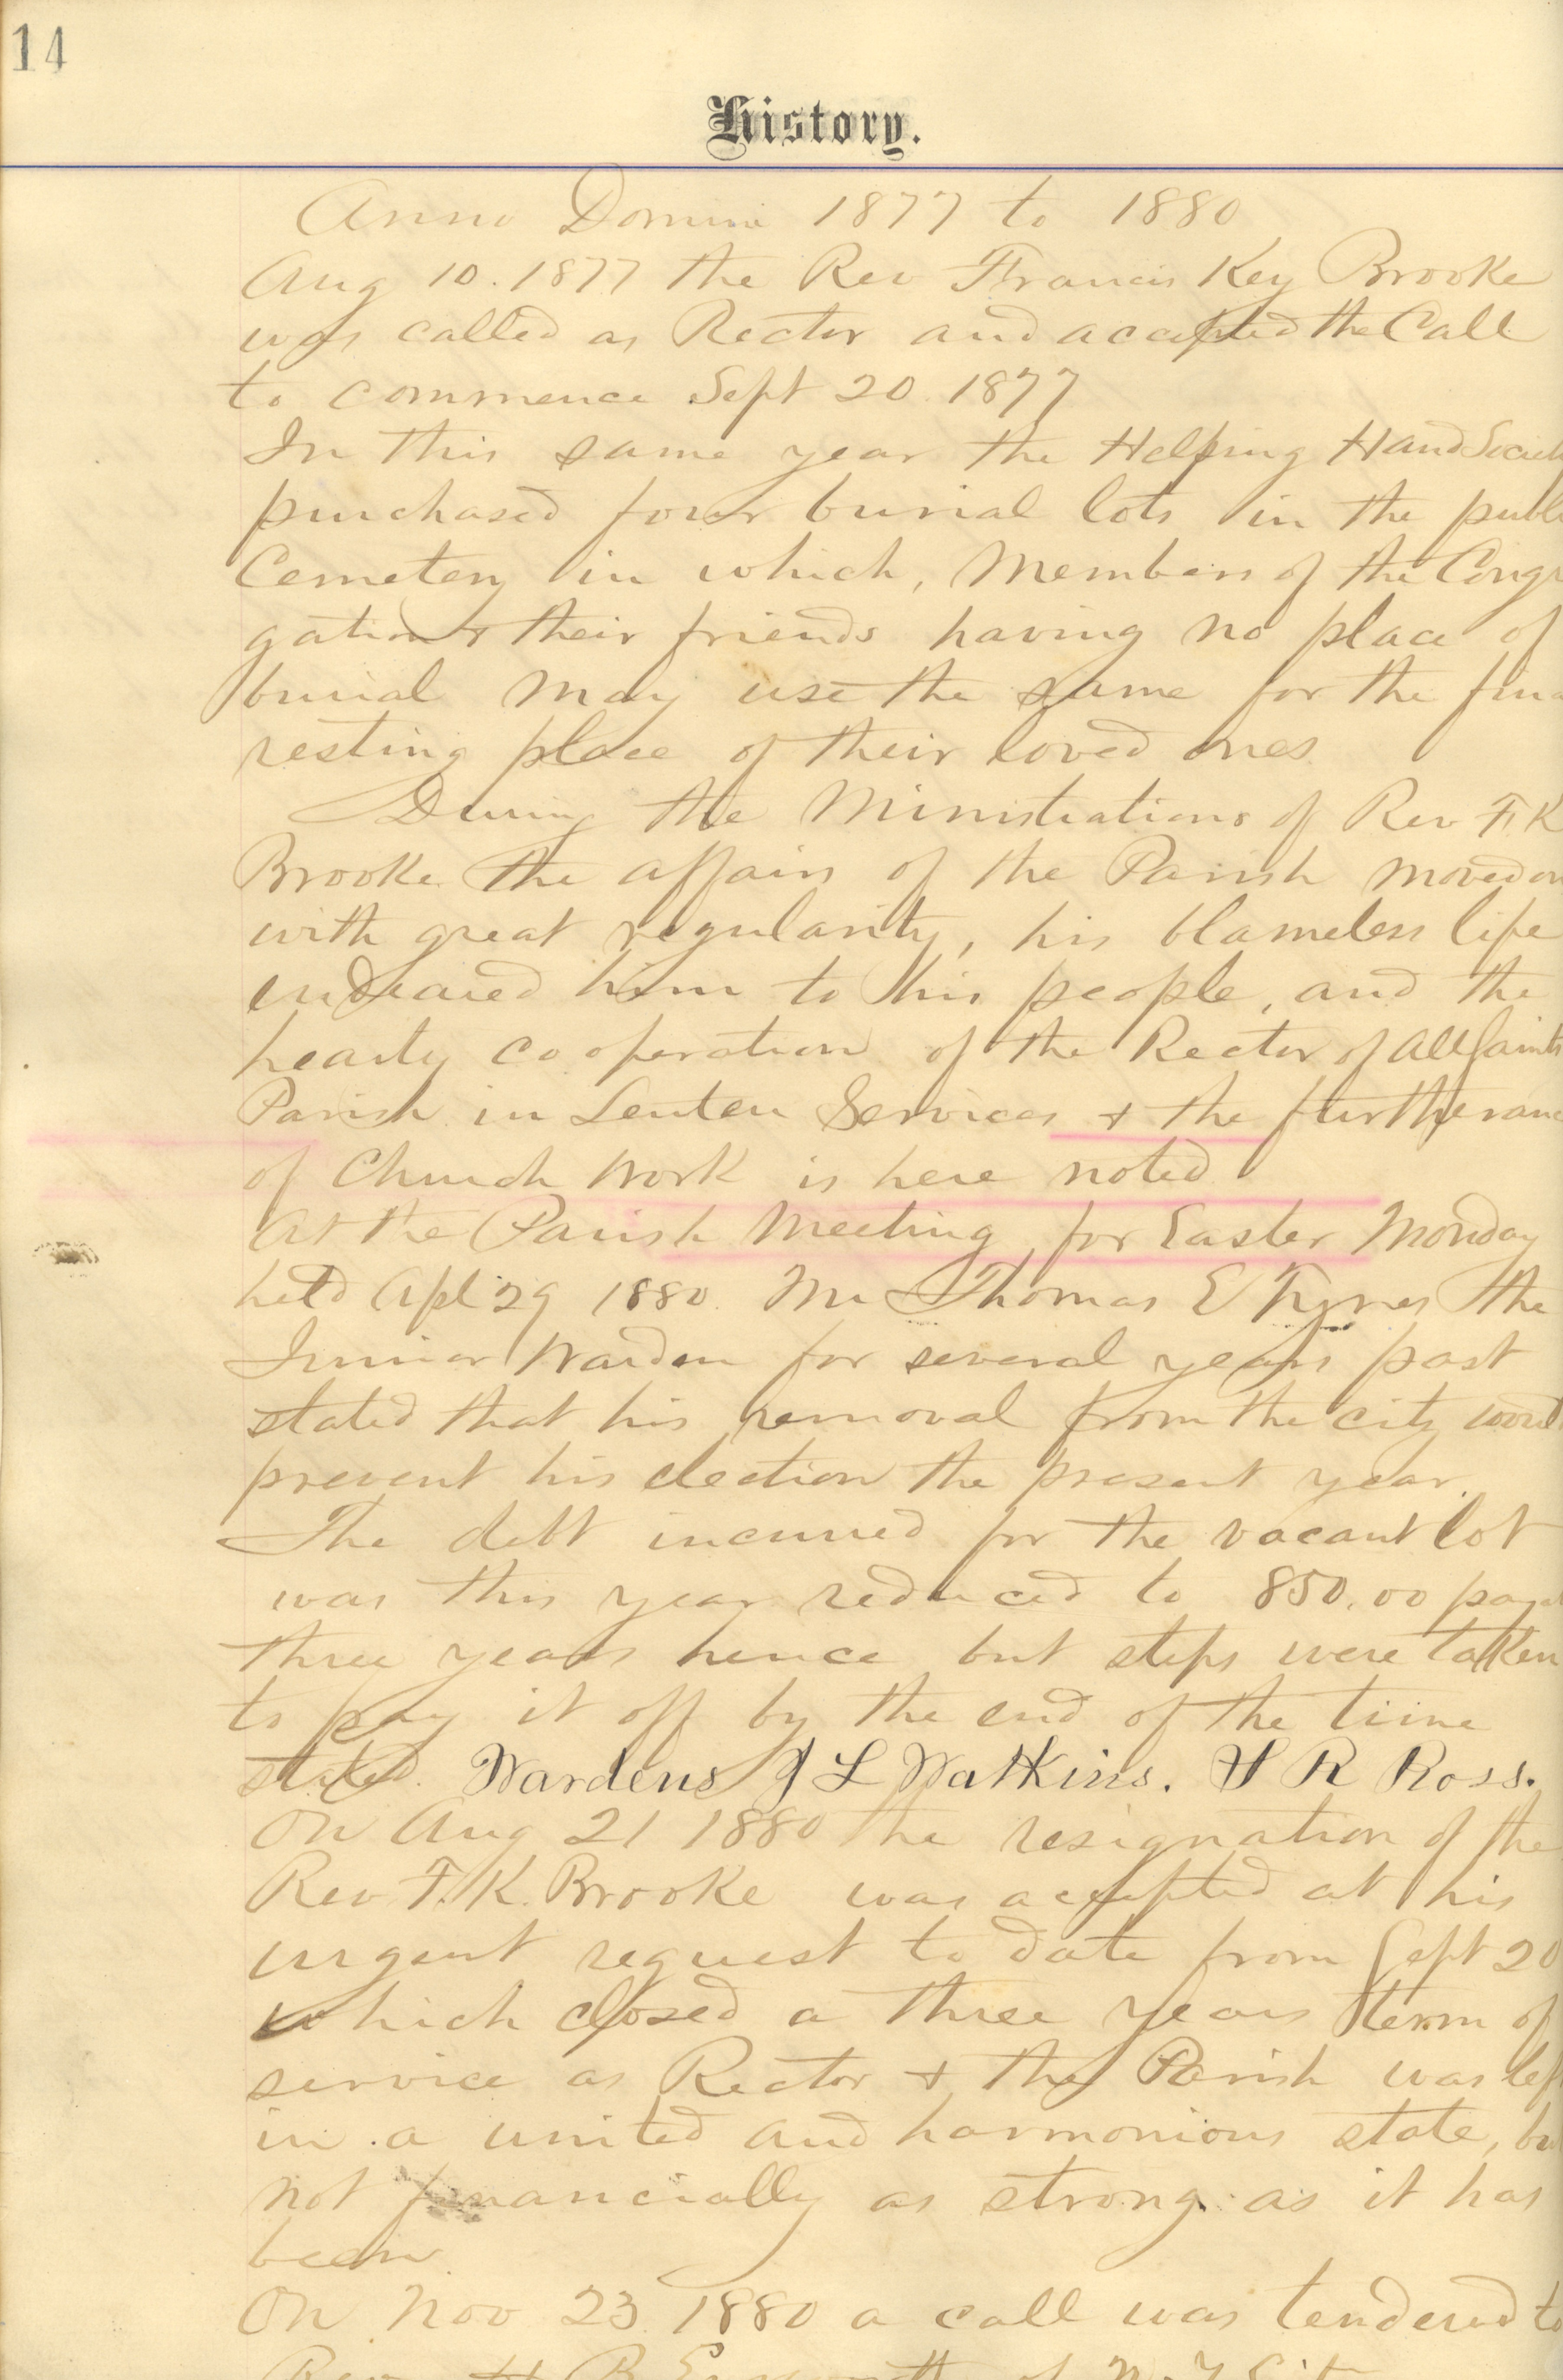 14
History.
Anno Domini 1877 to 1880
Aug 10. 1877 the Rev Francis Key Brooke
was called as Rector and accepted the Call
to commence Sept 20. 1877
In this same year the Helping Hand Societ
purchased four burial lots in the publi
Cemetery in which, Members of the Congr
gation & their friends having no place of
burial may use the same for the fina
resting place of their loved ones
During the Ministrations of Rev F. K
Brooke the affairs of the Parish moved on
with great regularity, his blameless life
endeared him to his people, and the
hearty cooperation of the Rector of All Saints
Parish in Lenten Services & the furtheranc
of Church Work is here noted
At the Parish Meeting, for Easter Monday
held Apl 29 1880. Mr Thomas E the
Junior Warden for several years past
stated that his removal from the city would
prevent his election the present year.
The debt incurred for the vacant lot
was this year reduced to 850.00
three years hence but steps were taken
to pay it off by the end of the time
stated. Wardens J L Watkins. H R Ross.
On Aug 21 1880 the resignation of the
Rev F. K. Brooke was accepted at his
urgent request to date from Sept 20
which closed a three years term of
service as Rector & the Parish was left
in a united and harmonious state, bu
not financially as strong as it has
been
On Nov 23. 1880 a call was tendered to
Rev H B of N. Y City